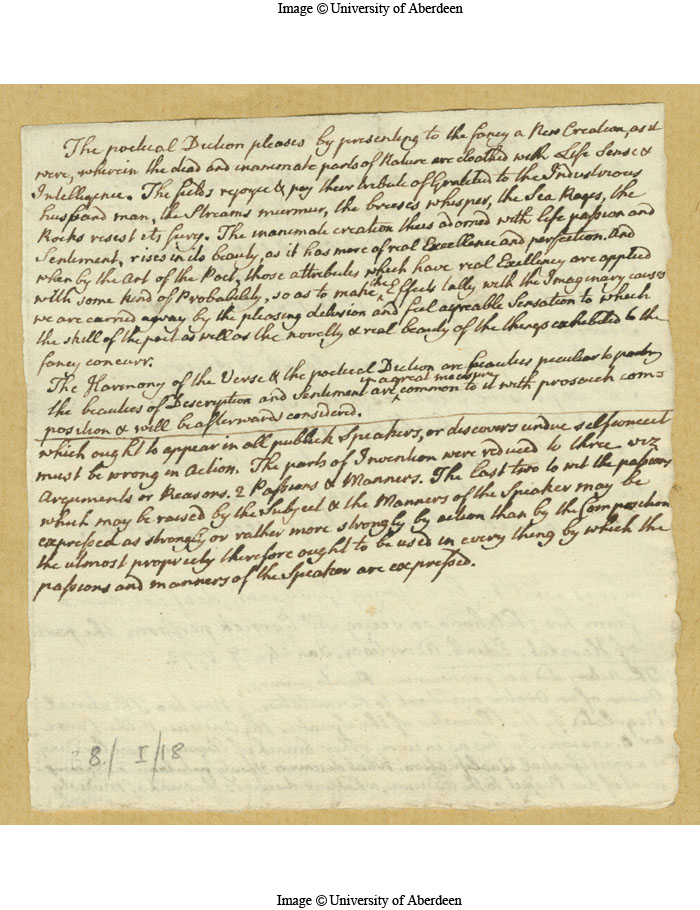 Image © University of Aberdeen
The poetical Diction pleases by presenting to the fancy a New Creation, as it
were, wherein the dead and inanimate parts of Nature are cloathed with Life Sense &
Intelligence. The fields rejoyce & pay their tribute of Gratitud to the Industrious
husband man, the Streams murmur, the breeses whisper, the Sea Rages, the
Rocks resist its fury. The inanimate creation thus adorned with life passion and
Sentiment, rises in its beauty, as it has more of real Excellence and perfection. And
when by the Art of the Poet, those attributes which have real Exellency are applied
with some kind of Probability, so as to make the Effects tally with the Imaginary causes
we are carried away by the pleasing delusion and feel agreable Sensation to which
the skill of the poet as well as the novelty & real beauty of the things exhibited to the
fancy concurr.
The Harmony of the Verse & the poetical Diction are beauties peculiar to poetry
the beauties of Description and Sentiment are in a great measure common to it with prosaick com=
position & will be afterwards considered.
which ought to appear in all publick Speakers, or discovers undue selfconceit
must be wrong in Action. The parts of Invention were reduced to three viz
Arguments or Reasons. 2 Passions & Manners. The last two to wit the passions
which may be raised by the Subject & the Manners of the Speaker may be
expressed as strongly or rather more strongly by action than by the Composition
the utmost propriety therefore ought to be used in every thing by which the
passions and manners of the Speaker are expressed.
8/ I/18
Image © University of Aberdeen